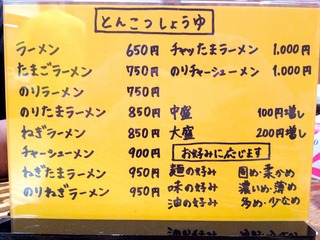 とんこつしょうゆ
ラーメン 650円
たまごラーメン 750円
のりラーメン 750円
のりたまラーメン 850円
ねぎラーメン 850円
チャーシューメン 900円
ねぎたまラーメン 950円
のりねぎラーメン 950円
チャッたまラーメン 1,000円
のりチャーシューメン 1,000円
中盛 100円増し
大盛 200円増し
お好みに応じます
麺の好み 固め・柔かめ
味の好み 濃いめ・薄め
油の好み 多め・少なめ